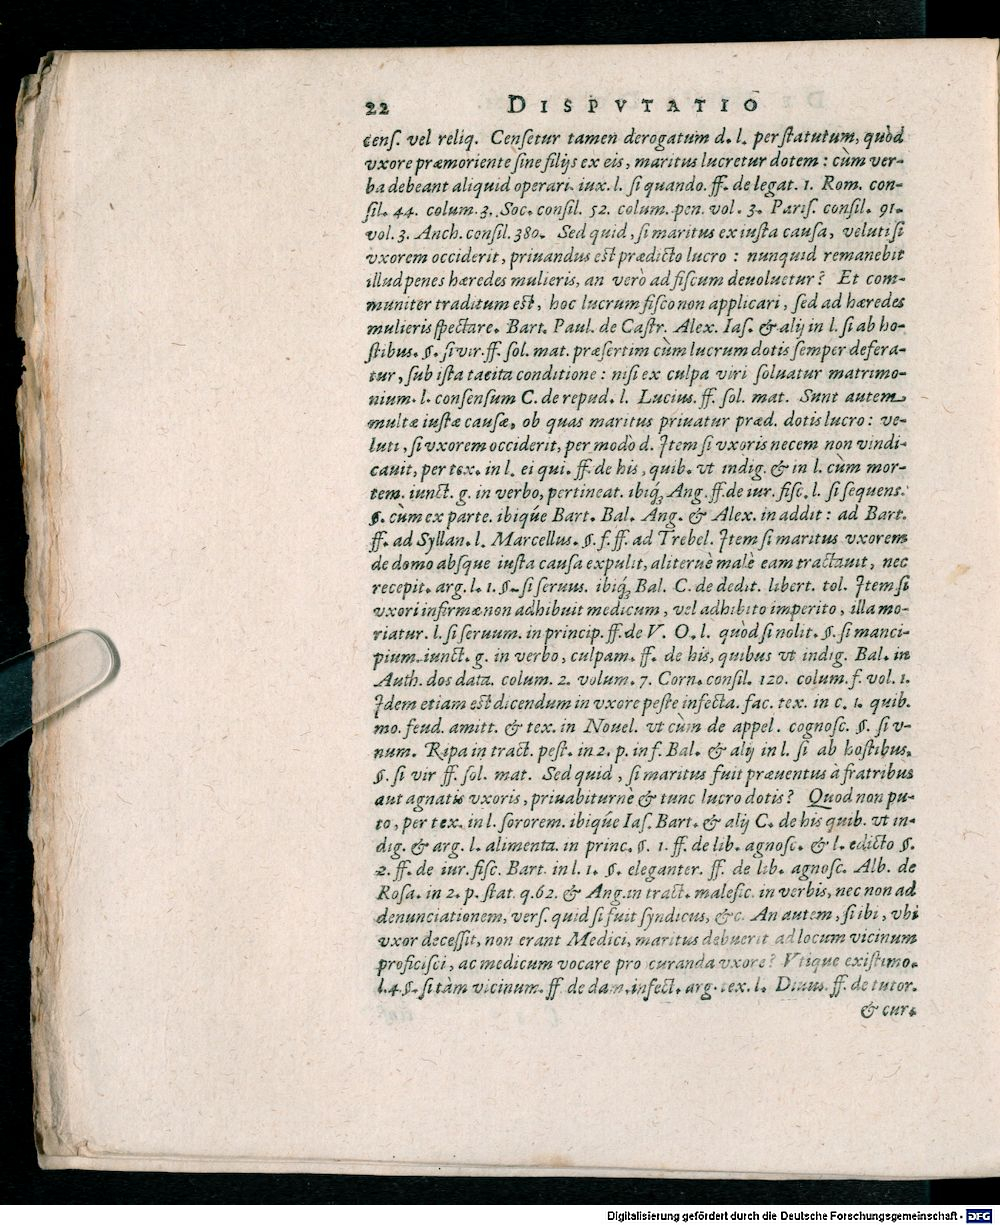 22 DISPVTATIO
cens. vel reliq. Censetur tamen derogatum d. l. per statutum, quòd
vxore præmoriente sine filijs ex eis, maritus lucretur dotem : cùm ver-
ba debeant aliquid operari. iux. l. si quando. ff. de legat. 1. Rom. con-
sil. 44. colum. 3. Soc. consil. 52. colum. pen. vol. 3. Paris. consil. 91.
vol. 3. Anch. consil. 380. Sed quid, si maritus ex iusta causa, veluti si
vxorem occiderit, priuandus est prædicto lucro : nunquid remanebit
illud penes hæredes mulieris, an verò ad fiscum deuoluetur? Et com-
muniter traditum est, hoc lucrum fisco non applicari, sed ad hæredes
mulieris spectare. Bart. Paul. de Castr. Alex. Ias. & alij in l. si ab ho-
stibus. §. si vir. ff. sol. mat. præsertim cùm lucrum dotis semper defera-
tur, sub ista tacita conditione : nisi ex culpa viri soluatur matrimo-
nium. l. consensum C. de repud. l. Lucius. ff. sol. mat. Sunt autem
multæ iustæ causæ, ob quas maritus priuatur præd. dotis lucro : ve-
luti, si vxorem occiderit, per modò d. Item si vxoris necem non vindi-
cauit, per tex. in l. ei qui. ff. de his, quib. vt indig. & in l. cùm mor-
tem. iunct. g. in verbo, pertineat. ibiq́; Ang. ff. de iur. fisc. l. si sequens.
§. cùm ex parte. ibiq́ue Bart. Bal. Ang. & Alex. in addit : ad Bart.
ff. ad Syllan. l. Marcellus. §. f. ff. ad Trebel. Item si maritus vxorem
de domo absque iusta causa expulit, aliterue�loc malè eam tractauit, nec
recepit. arg. l. 1. §. si seruus. ibiq́; Bal. C. de dedit. libert. tol. Item si
vxori infirmæ non adhibuit medicum, vel adhibito imperito, illa mo-
riatur. l. si seruum. in princip. ff. de V. O. l. quòd si nolit. §. si manci-
pium. iunct. g. in verbo, culpam. ff. de his, quibus vt indig. Bal. in
Auth. dos data. colum. 2. volum. 7. Corn. consil. 120. colum. f. vol. 1.
Idem etiam est dicendum in vxore peste infecta. fac. tex. in c. 1. quib.
mo. feud. amitt. & tex. in Nouel. vt cùm de appel. cognosc. §. si v-
num. Ripa in tract. pest. in 2. p. in f. Bal. & alij in l. si ab hostibus.
§. si vir ff. sol. mat. Sed quid, si maritus fuit præuentus à fratribus
aut agnatis vxoris, priuabiturnè & tunc lucro dotis? Quod non pu-
to, per tex. in l. sororem. ibiq́ue Ias. Bart. & alij C. de his quib. vt in-
dig. & arg. l. alimenta. in princ. §. 1. ff. de lib. agnosc. & l. edicto §.
2. ff. de iur. fisc. Bart. in l. 1. §. eleganter. ff. de lib. agnosc. Alb. de
Rosa. in 2. p. stat. q. 62. & Ang. in tract. malefic. in verbis, nec non ad
denunciationem, vers. quid si fuit syndicus, &c. An autem, si ibi, vbi
vxor decessit, non erant Medici, maritus debuerit ad locum vicinum
proficisci, ac medicum vocare pro curanda vxore? Vtique existimo.
l. 4. §. si tàm vicinum. ff. de dam. infect. arg. tex. l. Diuus. ff. de tutor.
& cur.
Digitalisierung gefördert durch die Deutsche Forschungsgemeinschaft - DFG